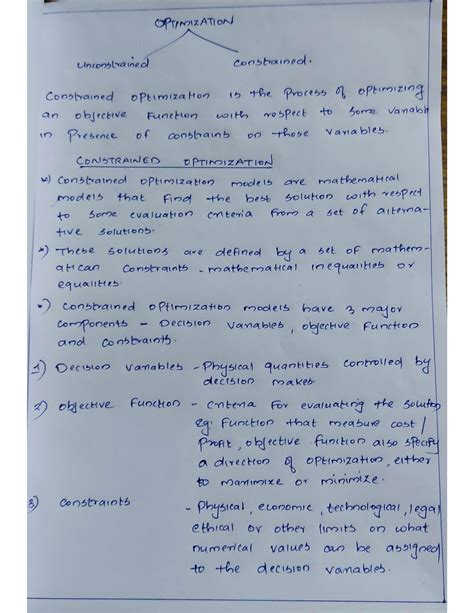 OPTIMIZATION
Unconstrained Constrained.
Constrained optimization is the Process of optimizing
an objective Function with respect to some variabl
in Presence of constraints on those variables.
CONSTRAINED OPTIMIZATION
*) Constrained optimization models are mathematical
models that find the best solution with respect
to some evaluation criteria from a set of alterna-
tive solutions.
*) These solutions are defined by a set of mathem-
atican constraints - mathematical inequalities or
equalities.
*) Constrained optimization models have 3 major
components - Decision variables, objective Function
and constraints.
1) Decision variables - Physical quantities controlled by
decision maker
2) objective Function - criteria For evaluating the solution
eg: Function that measure cost /
Profit, objective function also specify
a direction of optimization, either
to maximize or minimize.
3) constraints - Physical, economic, technological, legal
ethical or other limits on what
numerical values can be assigned
to the decision variables.